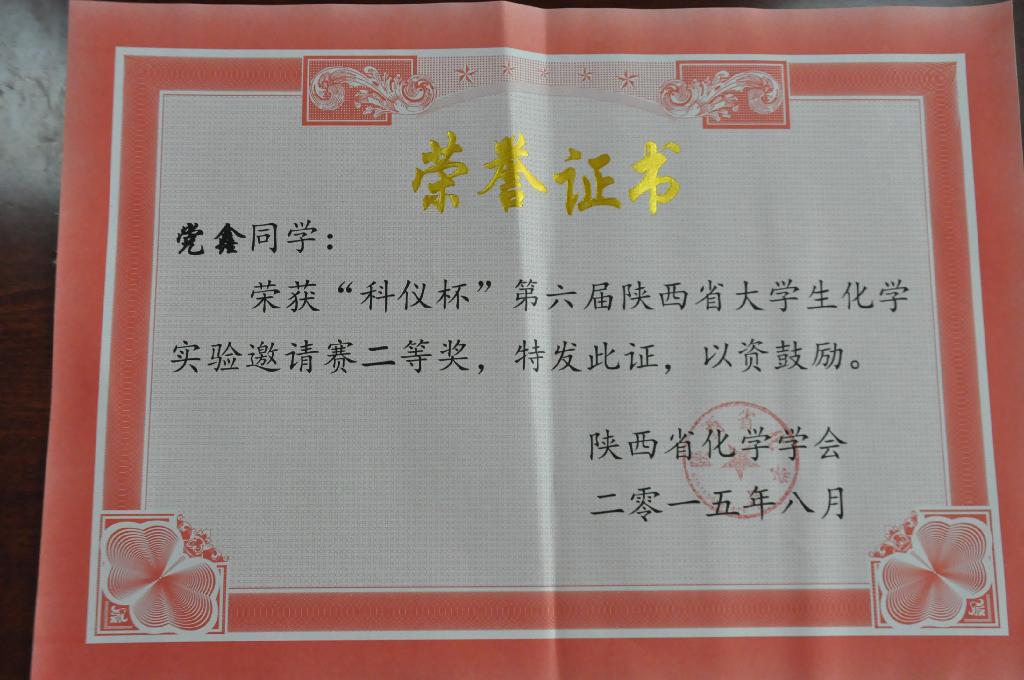 荣誉证书
党鑫同学：
荣获“科仪杯”第六届陕西省大学生化学
实验邀请赛二等奖，特发此证，以资鼓励。
陕西省化学学会
二零一五年八月